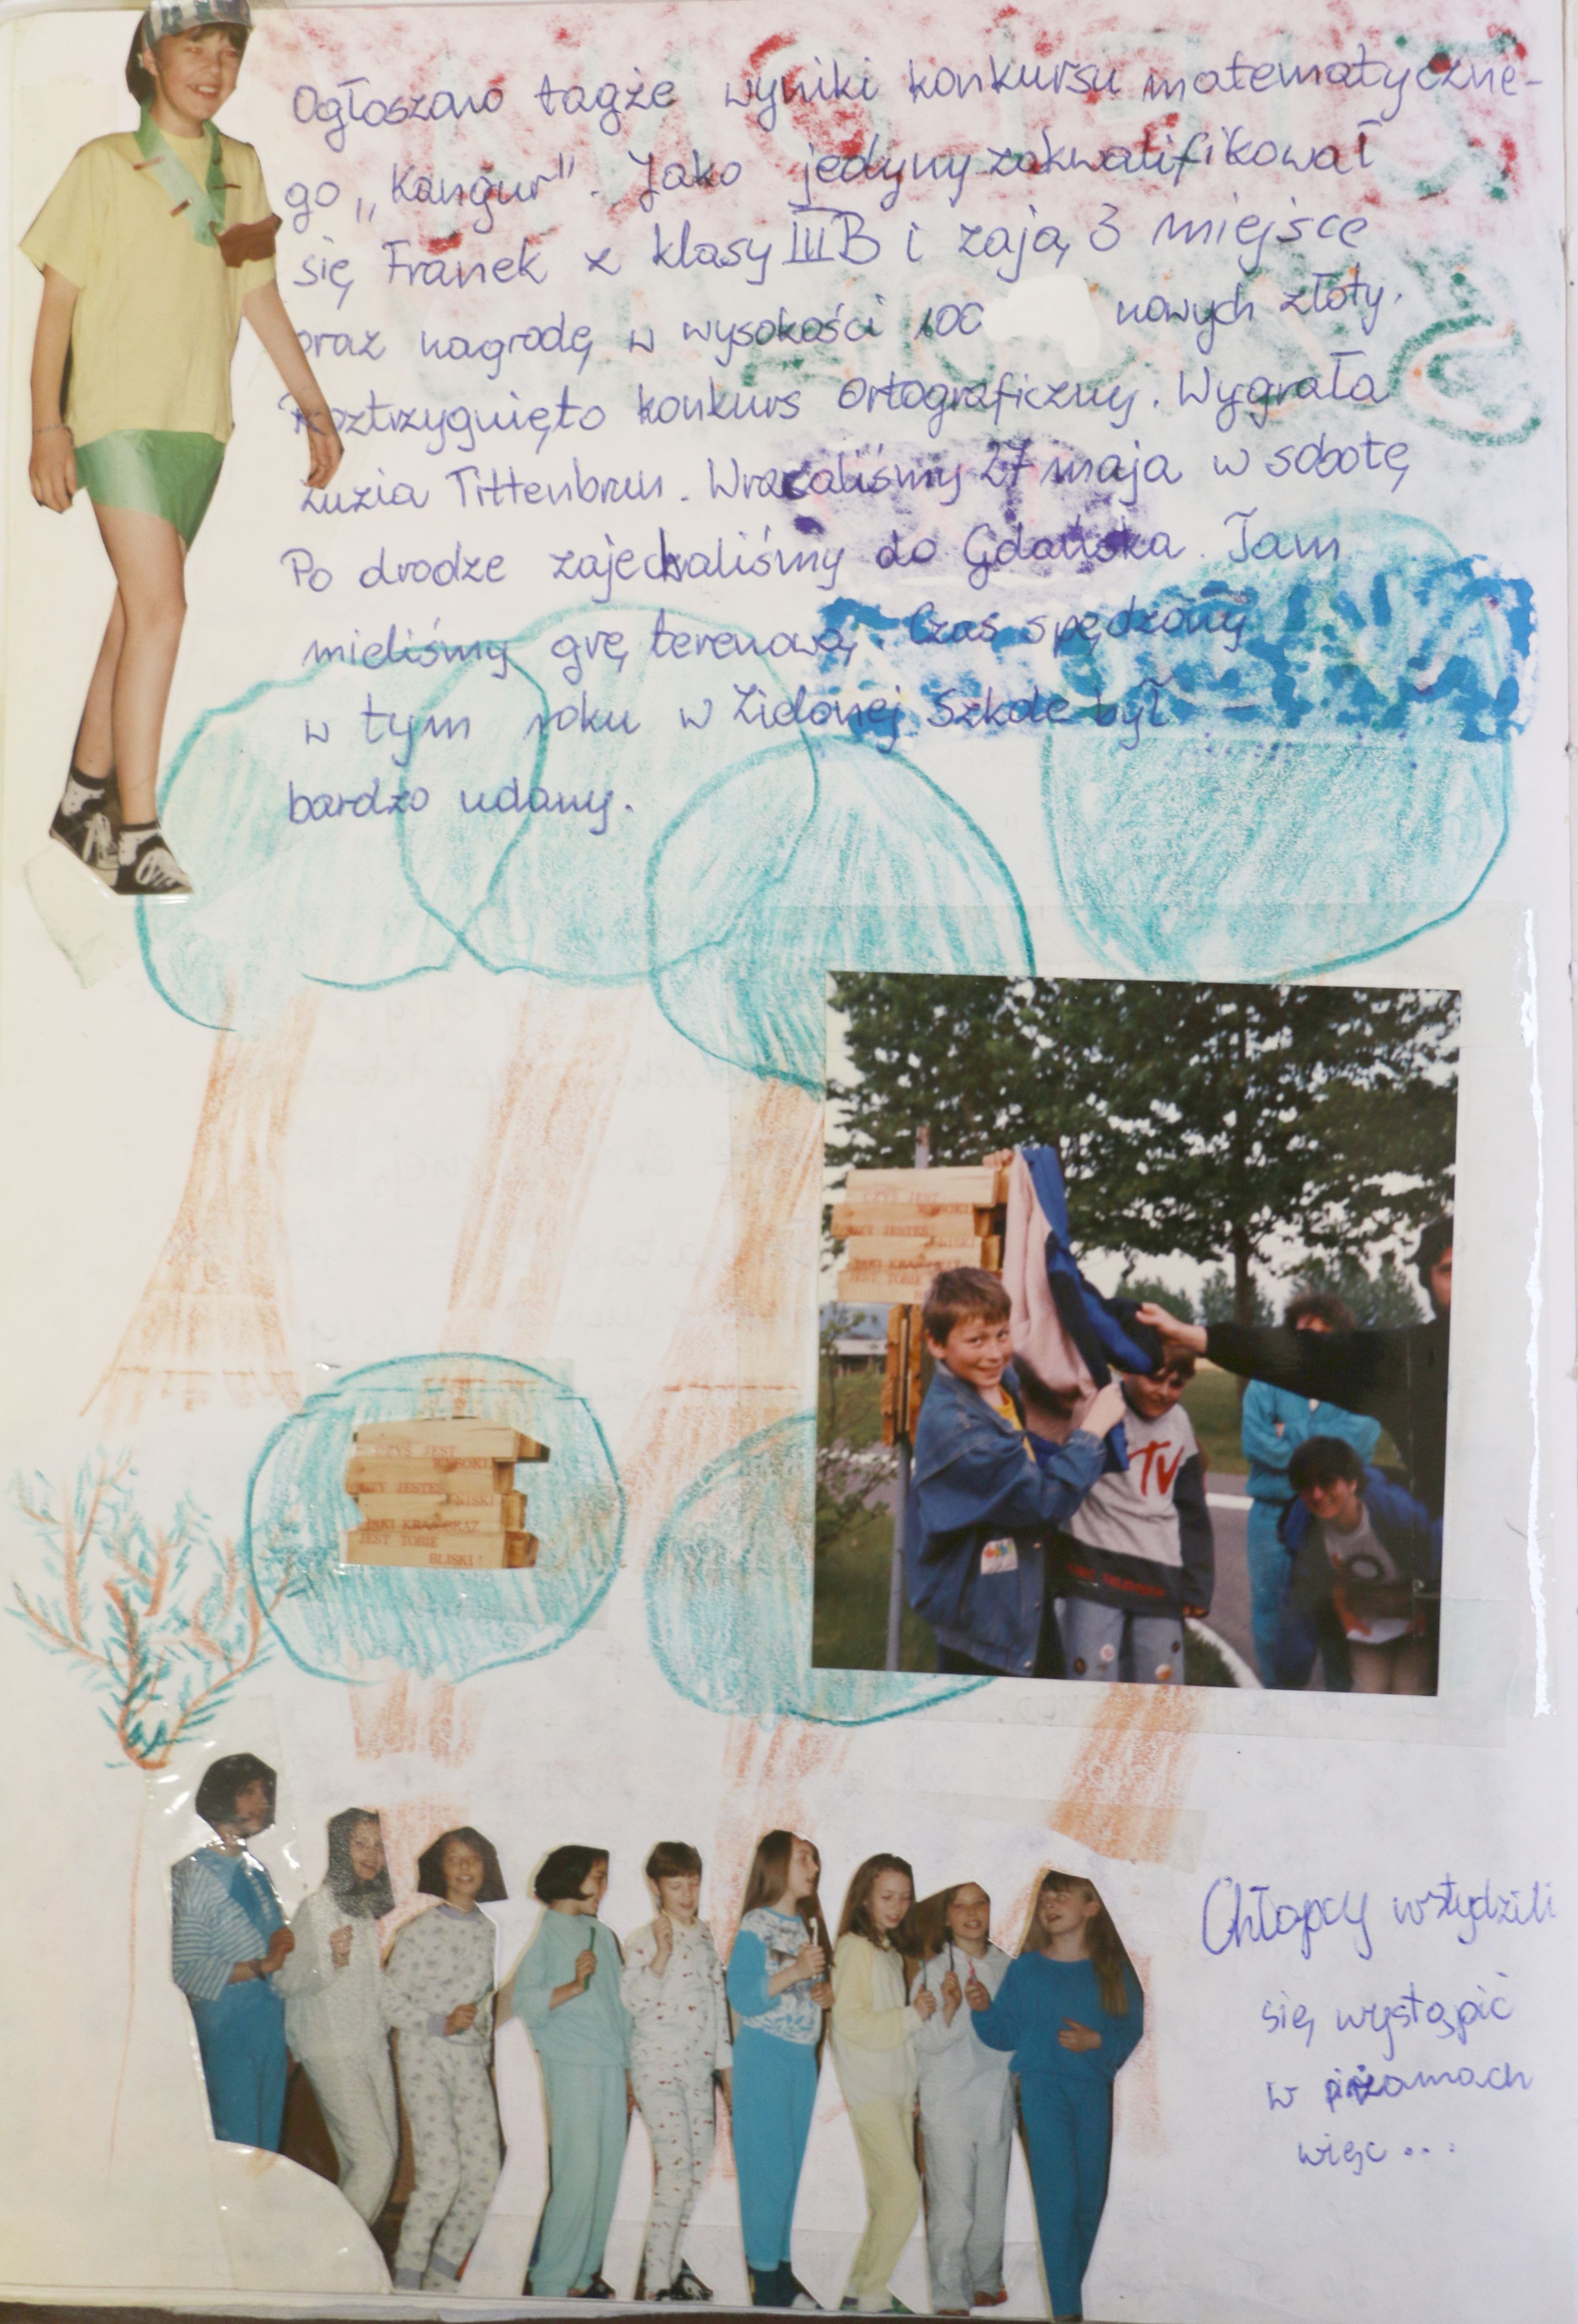 Ogłoszono tagże wyniki konkursu matematyczne-
go „Kangur". Jako jedyny zakwalifikował
się Franek z klasy III B i zają 3 miejsce
oraz nagrodę w wysokości 100 nowych złoty.
Roztrzygnięto konkurs Ortograficzny. Wygrała
Zuzia Tittenbrun. Wracaliśmy 27 maja w sobotę
Po drodze zajechaliśmy do Gdańska. Tam
mieliśmy grę terenową. Czas spędzony
w tym roku w Zielonej Szkole był
bardzo udany.
CZYŚ JEST
WYSOKI
CZY JESTEŚ
NISKI
JAKI KRAJOBRAZ
JEST TOBIE
CZYŚ JEST
WYSOKI
CZY JESTEŚ
NISKI
JAKI KRAJOBRAZ
JEST TOBIE
BLISKI!
TV
Chłopcy wstydzili
się wystąpić
w piżamach
więc...